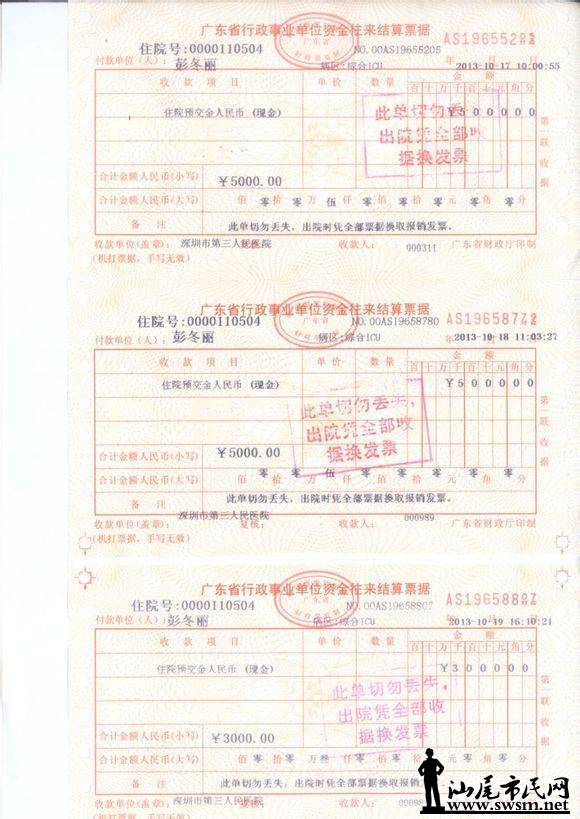 广东省行政事业单位资金往来结算票据
住院号:0000110504
NO.00AS19655205
付款单位(人): 彭冬丽
病区:综合ICU
年2013-10-17 10:00:55
收款项目 单价 数量 金额
百十万千百十元角分
住院预交金人民币 (现金) ¥500000
此单切勿丢
出院凭全部收
据换发票
合计金额人民币(小写) ¥5000.00
合计金额人民币(大写) 佰零拾零万伍仟零佰零拾零元零角零分
备注 此单切勿丢失,出院时凭全部票据换取报销发票。
收款单位(盖章): 深圳市第三人民医院 收款人: 000311 广东省财政厅印制
(机打票据,手写无效)
第一联 收据
广东省行政事业单位资金往来结算票据
住院号:0000110504
NO.00AS19658780
付款单位(人): 彭冬丽
病区:综合ICU
年2013-10-18 11:03:27
收款项目 单价 数量 金额
百十万千百十元角分
住院预交金人民币 (现金) ¥500000
此单切勿丢失,
出院凭全部收
据换发票
合计金额人民币(小写) ¥5000.00
合计金额人民币(大写) 佰零拾零万伍仟零佰零拾零元零角零分
备注 此单切勿丢失,出院时凭全部票据换取报销发票。
收款单位(盖章): 深圳市第三人民医院 复核: 收款人: 000989 广东省财政厅印制
(机打票据,手写无效)
第一联 收据
广东省行政事业单位资金往来结算票据
住院号:0000110504
付款单位(人): 彭冬丽
病区:综合ICU
2013-10-19 16:10:21
收款项目 单价 数量 金额
百十万千百十元角分
住院预交金人民币 (现金) ¥300000
此单切勿丢失,
出院凭全部收
据换发票
合计金额人民币(小写) ¥3000.00
合计金额人民币(大写) 佰零拾零万叁仟零佰零拾零元零角零分
备注 此单切勿丢失,出院时凭全部票据换取报销发票。
收款单位(盖章): 深圳市第三人民医院 收款人:
(机打票据,手写无效)
第一联 收据
汕尾市民网
www.swsm.net